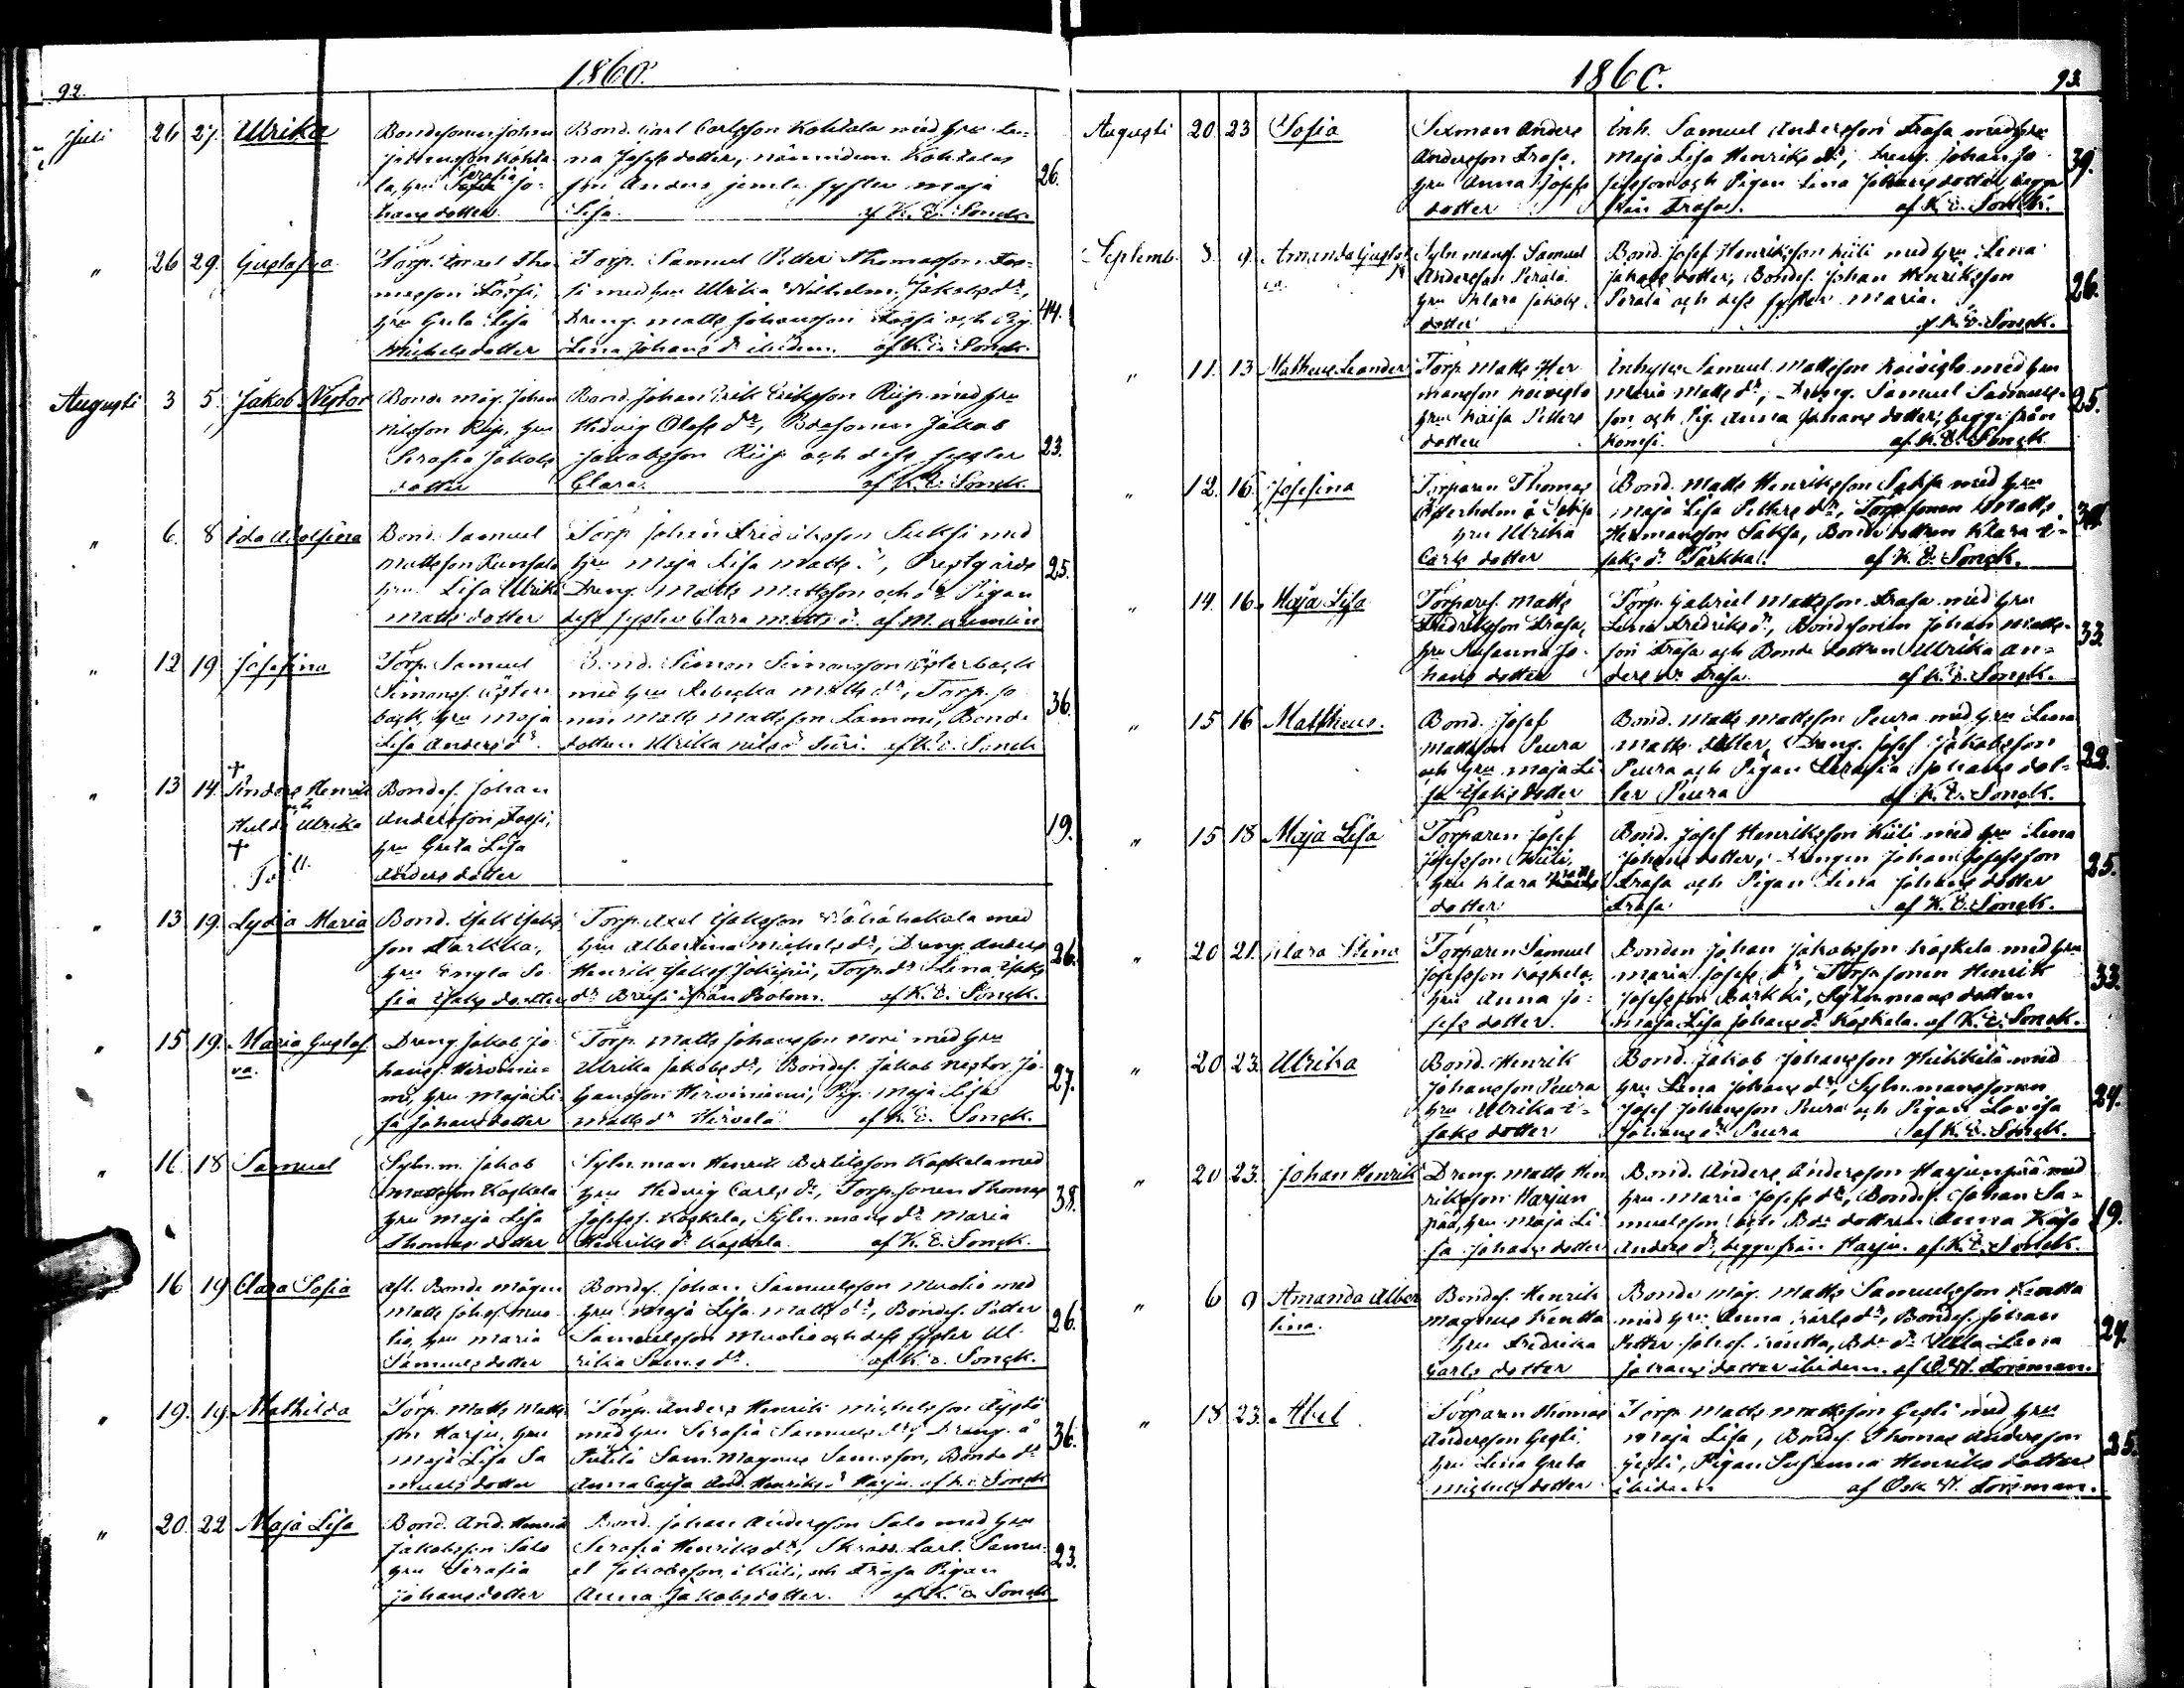 92.
1860.
Juli 26 27. Ulrika
Bondesonen Johan
Johansson Kohta
la, hru Serafia Jo=
hans dotter
Bond. Carl Carlsson Kohtala med hru Le=
na Josefs dotter, Kohtalas
son Anders jemte syster Maja
Lisa. af K. E. Sonck.
26.
" 26 29. Gustafva
Torp. Israel Tho
masson Lassi,
hru Greta Lisa
Michelsdotter
Torp. Samuel Petter Thomasson Las=
si med hru Ulrika Wilhelm. Jakobs dr,
Dreng. Matts Johansson Lassi och Pig.
Lena Johans dr ibidem. af K. E. Sonck.
44.
Augusti 3 5. Jakob Nestor
Bonde måg. Johan
Nilsson Riip, hru
Serafia Jakobs
dotter
Bond. Johan Erik Eriksson Riip med hru
Hedvig Olofs dr, Bdesonen Jakob
Jakobsson Riip och dess syster
Clara. af K. E. Sonck.
23.
" 6. 8 Ida Adolfina
Bond. Samuel
Mattsson
hru Lisa Ulrika
Matts dotter
Torp. Johan Fredriksson Suksi med
hru Maja Lisa Matts dr, Prestgårds
Dreng. Matts Mattsson och Pigan
dess syster Clara Matts dr. af M.
25.
" 12 19 Josefina
Torp. Samuel
Simonss. Öster
back, hru Maja
Lisa Anders dr.
Bond. Simon Simonsson Österback
med hru Rebecka Matts dr, Torp. so
nen Matts Mattsson Lammi, Bonde
dottren Ulrika Nils dr Turi. af K. E. Sonck
36.
" 13 14. † Anders Henrik
och
Hulda Ulrika
†
Tvill.
Bondes. Johan
Andersson Passi,
hru Greta Lisa
Anders dotter
19.
" 13 19. Lydia Maria
Bond. Isak Isaks
son Parkka,
hru Engla So
fia Isaks dotter
Torp. Axel Isaksson Wähähakola med
hru Albertina Michels dr, Dreng. Anders
Henrik Isakss. Jokipii, Torp. dr Lena Isaks
dr från Botom. af K. E. Sonck.
26.
" 15 19. Maria Gustaf
va.
Dreng. Jakob Jo
hanss. Hirvinie
mi, hru Maja Li
sa Johansdotter
Torp. Matts Johansson Nori med hru
Ulrika Jakobs dr, Bondes. Jakob Nestor Jo=
hansson Hirviniemi, Pig. Maja Lisa
Matts dr Hirvelä af K. E. Sonck.
27.
" 16 18 Samuel
Sytn. m. Jakob
Mattsson Koskela
hru Maja Lisa
Thomas dotter
Sytn. man Henrik Bertilsson Koskela med
hru Hedvig Carls dr, Torp. sonen Thomas
Josefss. Koskela, Sytn. mans dr Maria
Henriks dr Koskela. af K. E. Sonck.
38.
" 16 19 Clara Sofia
Afl. Bonde mågen
Matts Johss. Muo
tio, hru Maria
Samuels dotter
Bondes. Johan Samuelsson Muotio med
hru Maja Lisa Matts dr, Bondes. Petter
Samuelsson Muotio och dess syster Ul=
rika Sam:s dr. af K. E. Sonck.
26.
" 19. 19. Mathilda
Torp. Matts Matts
son Harju, hru
Maja Lisa Sa
muels dotter
Torp. Anders Henrik Michelsson
med hru Serafia Samuels dr, Dreng. å
Tuttila Sam. Magnus Samsson, Bonde dr
Anna Caisa And. Henriks dr Harju. af K. E. Sonck
36.
" 20. 22 Maja Lisa
Bond. And. Henrik
Jakobsson Salo
hru Serafia
Johansdotter
Bond. Johan Andersson Salo med hru
Serafia Henriks dr, Skrädd. Lärl. Samu=
el Jakobsson i Kiili, och Frasa Pigan
Anna Jakobsdotter. af K. E. Sonck
23.
1860.
93.
Augusti 20. 23 Sofia
Sexman Anders
Andersson Frasa,
hru Anna Josefs
dotter
Inh. Samuel Andersson Frasa med hru
Maja Lisa Henriks dr, Dreng. Johan Jo
sefsson och Pigan Lina Johans dotter, begge
från Frasa. af K. E. Sonck.
39.
Septemb. 8. 9. Amanda Gustaf
va.
Sytn. manss. Samuel
Andersson Perälä
hru Klara Jakobs
dotter
Bond. Josef Henriksson Kiili med hru Lena
Jakobs dotter, Bondes. Johan Henriksson
Perälä och dess syster Maria.
af K. E. Sonck.
26.
" 11. 13 Matheus Leander
Torp. Matts Her
mansson Koivisto
hru Kaisa Petters
dotter
Inhyses Samuel Mattsson Koivisto med hru
Maria Matts dr, Dreng. Samuel Samuels=
son och Pig. Anna Johans dotter, begge från
af K. E. Sonck
25.
" 12. 16. Josefina
Torparen Thomas
Österholm å Saksa
hru Ulrika
Carls dotter
Bond. Matts Henriksson Saksa med hru
Maja Lisa Petters dr, Torpsonen Matts
Hermansson Saksa, Bonde dottren Klara I=
saks dr Parkka. af K. E. Sonck.
" 14. 16. Maja Lisa
Torpares. Matts
Fredriksson Frasa,
hru Susanna Jo=
hans dotter
Torp. Gabriel Mattsson Frasa med hru
Lena Fredriks dr, Bondesonen Johan Matts=
son Frasa och Bonde dottren Ulrika An=
ders dr Frasa. af K. E. Sonck.
33.
" 15 16 Mattheus.
Bond. Josef
Mattsson Peura
och hru Maja Li
sa Isaks dotter
Bond. Matts Mattsson Peura med hru Lena
Matts dotter, Dreng. Josef Jakobsson
Peura och Pigan Serafia Johans dot=
ter Peura af K. E. Sonck.
29.
" 15 18 Maja Lisa
Torparen Josef
Josefsson Kiili,
hru Klara
dotter
Bond. Josef Henriksson Kiili med hru Lena
Johans dotter, Drengen Johan Josefsson
Frasa och Pigan Lena Johans dotter
Frasa af K. E. Sonck.
25.
" 20 21. Klara Stina
Torparen Samuel
Josefsson Koskela,
hru Anna Jo=
sefs dotter.
Bonden Johan Jakobsson Koskela med hru
Maria Josefs dr, Torpsonen Henrik
Josefsson Parkki, Sytn. mans dottren
Maja Lisa Johans dr Koskela. af K. E. Sonck.
33.
" 20 23. Ulrika
Bond. Henrik
Johansson Peura
hru Ulrika I=
saks dotter
Bond. Jakob Johansson med
hru Lena Johans dr, Sytn. manssonen
Josef Johansson Peura och Pigan Lovisa
Johans dr Peura af K. E. Sonck.
24.
" 20 23. Johan Henrik
Dreng. Matts Hen
riksson Harjun
pää, hru Maja Li
sa Johans dotter
Bond. Anders Andersson Harjunpää med
hru Maria Josefs dr, Bondes. Johan Sa=
muelsson och Bde dottren Anna Kajsa
Anders dr, begge från Harju. af K. E. Sonck.
19.
" 6 9 Amanda Alber
tina.
Bondes. Henrik
Magnus Kentta
hru Fredrika
Carls dotter
Bonde måg. Matts Samuelsson Kentta
med hru Anna Carls dr, Bondes. Johan
Petter Johss. Kentta, Bde dr Ulla Lena
Johans dotter ibidem. af O. W. Forsman.
24.
" 18 23. Abel.
Torparen Thomas
Andersson Gesti,
hru Lena Greta
Michels dotter
Torp. Matts Mattsson Gesti med hru
Maja Lisa, Bondes. Thomas Andersson
Gesti, Pigan Susanna Henriks dotter
ibidem af Osk. W. Forsman.
25.